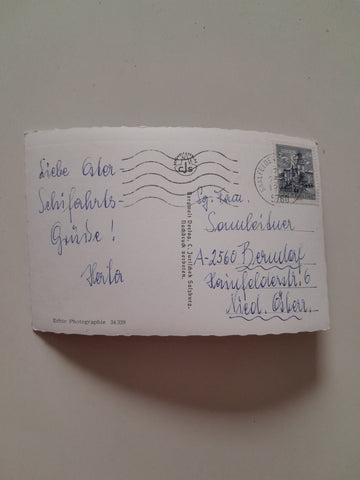 Liebe Oster-
Schifahrts-
Grüße!
Herta
Echte Photographie 34 329
Bergwelt Verlag, C. Jurischek Salzburg.
Nachdruck verboten.
CJS
SAALFELDEN
5760
Sg. Frau
Samleitner
A-2560 Berndorf
Hainfelderstr. 6
Nied. Österr.